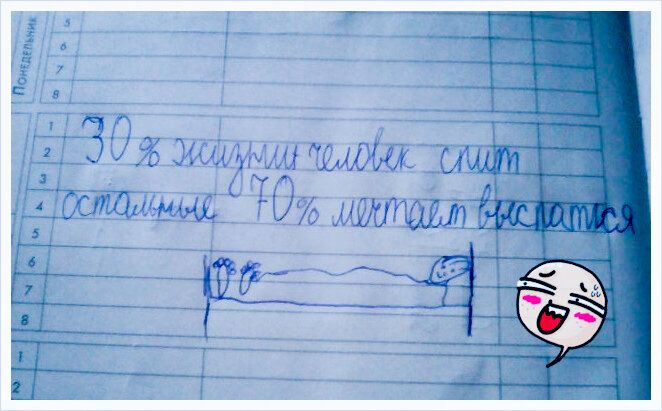 Понедельник
5
6
7
8
1
2 30% жизни человек спит
3
4 остальные 70% мечтает выспаться
5
6
7
8
1
2